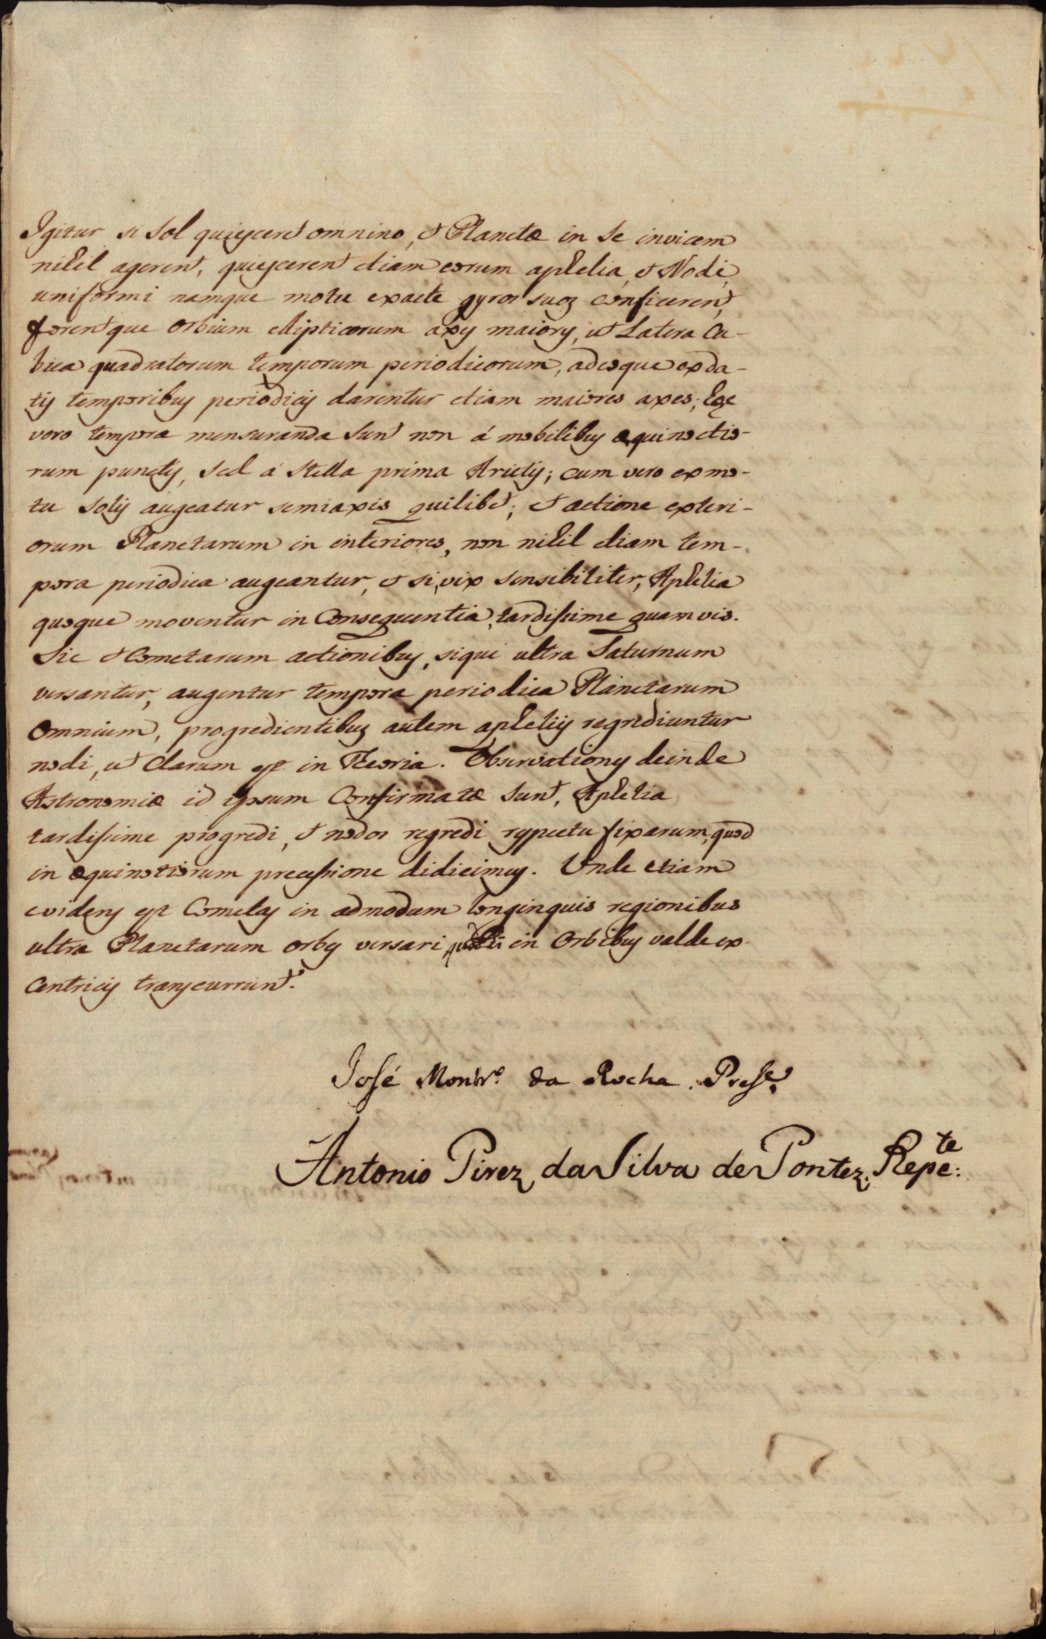 Igitur si Sol quiesceret omnino, et Planetæ in se invicem
nihil agerent, quiescerent etiam eorum aphelia, et Nodi,
uniformi namque motu exacte gyros suos conficerent,
forentque orbium ellipticorum axes maiores, ut Latera Cu-
bica quadratorum temporum periodicorum, adeoque ex da-
tis temporibus periodicis darentur etiam maiores axes; hæc
vero tempora mensuranda sunt non á mobilibus æquinoctio-
rum punctis, sed á stella prima Arietis; cum vero ex mo-
tu solis augeatur semiaxis quilibet; et actione exteri-
orum Planetarum in interiores, non nihil etiam tem-
pora periodica augeantur, et si vix sensibiliter, Aphelia
quoque moventur in Consequentia, tardissime quamvis.
Sic et Cometarum actionibus, siqui ultra Saturnum
versantur, augentur tempora periodica Planetarum
omnium, progredientibus autem apheliis regrediuntur
nodi, ut clarum est in Theoria. Observationes deinde
Astronomiæ id ipsum Confirmatæ sunt, Aphelia
tardissime progredi, et nodos regredi respectu fixarum, quod
in æquinotiorum precessione didicimus. Unde etiam
evidens est Cometas in admodum longinquis regionibus
ultra Planetarum orbes versari, in Orbibus valde ex-
centricis transcurrunt.
José Montr.º da Rocha. Prese.
Antonio Pirez da Silva de Pontez. Repe.te